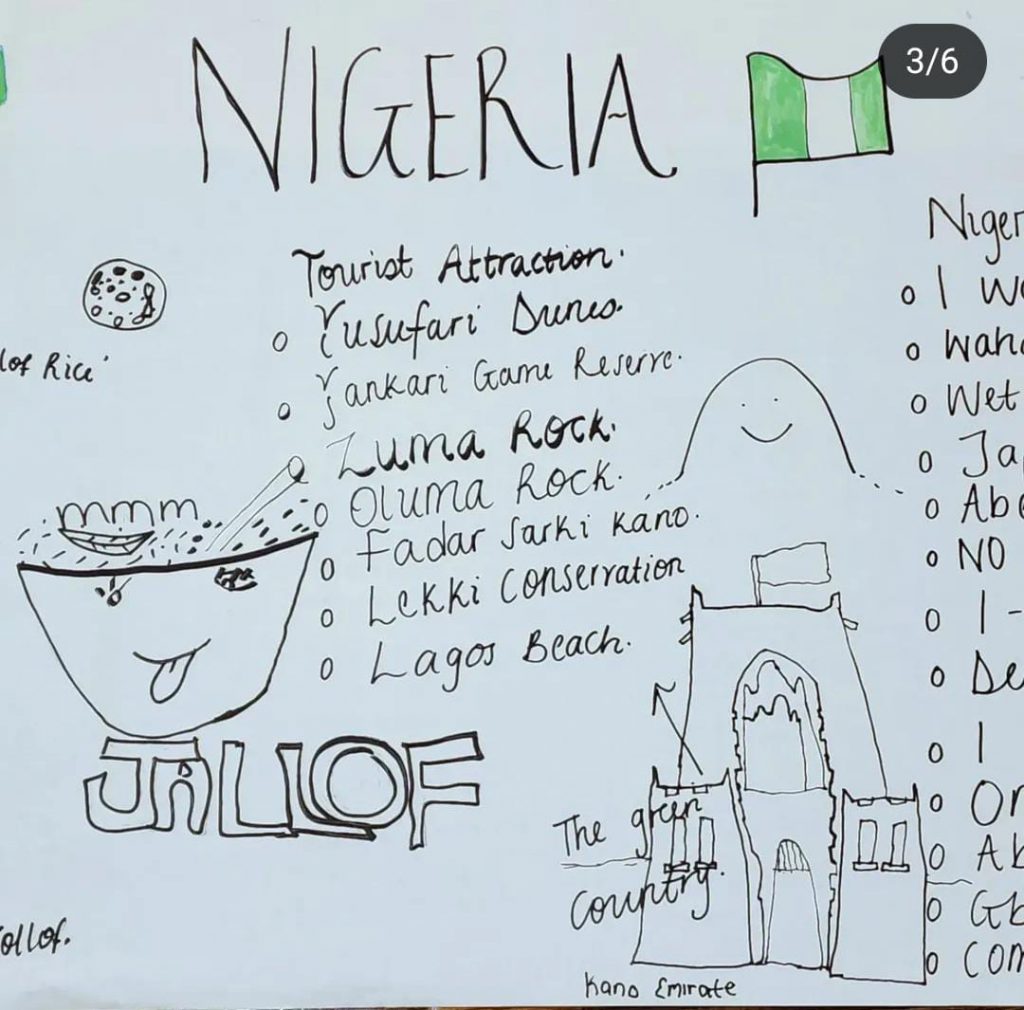 NIGERIA
3/6
Tourist Attraction.
Yusufari Dunes.
Yankari Game Reserve.
Zuma Rock.
Oluma Rock.
Fadar Sarki Kano.
Lekki Conservation
Lagos Beach.
lof Rice'
mmm
JALLOF
ollof.
The green
country.
Kano Emirate
Niger
I Wo
Waha
Wet
Ja
Abe
NO
I -
De
I
On
Ab
Gb
Com